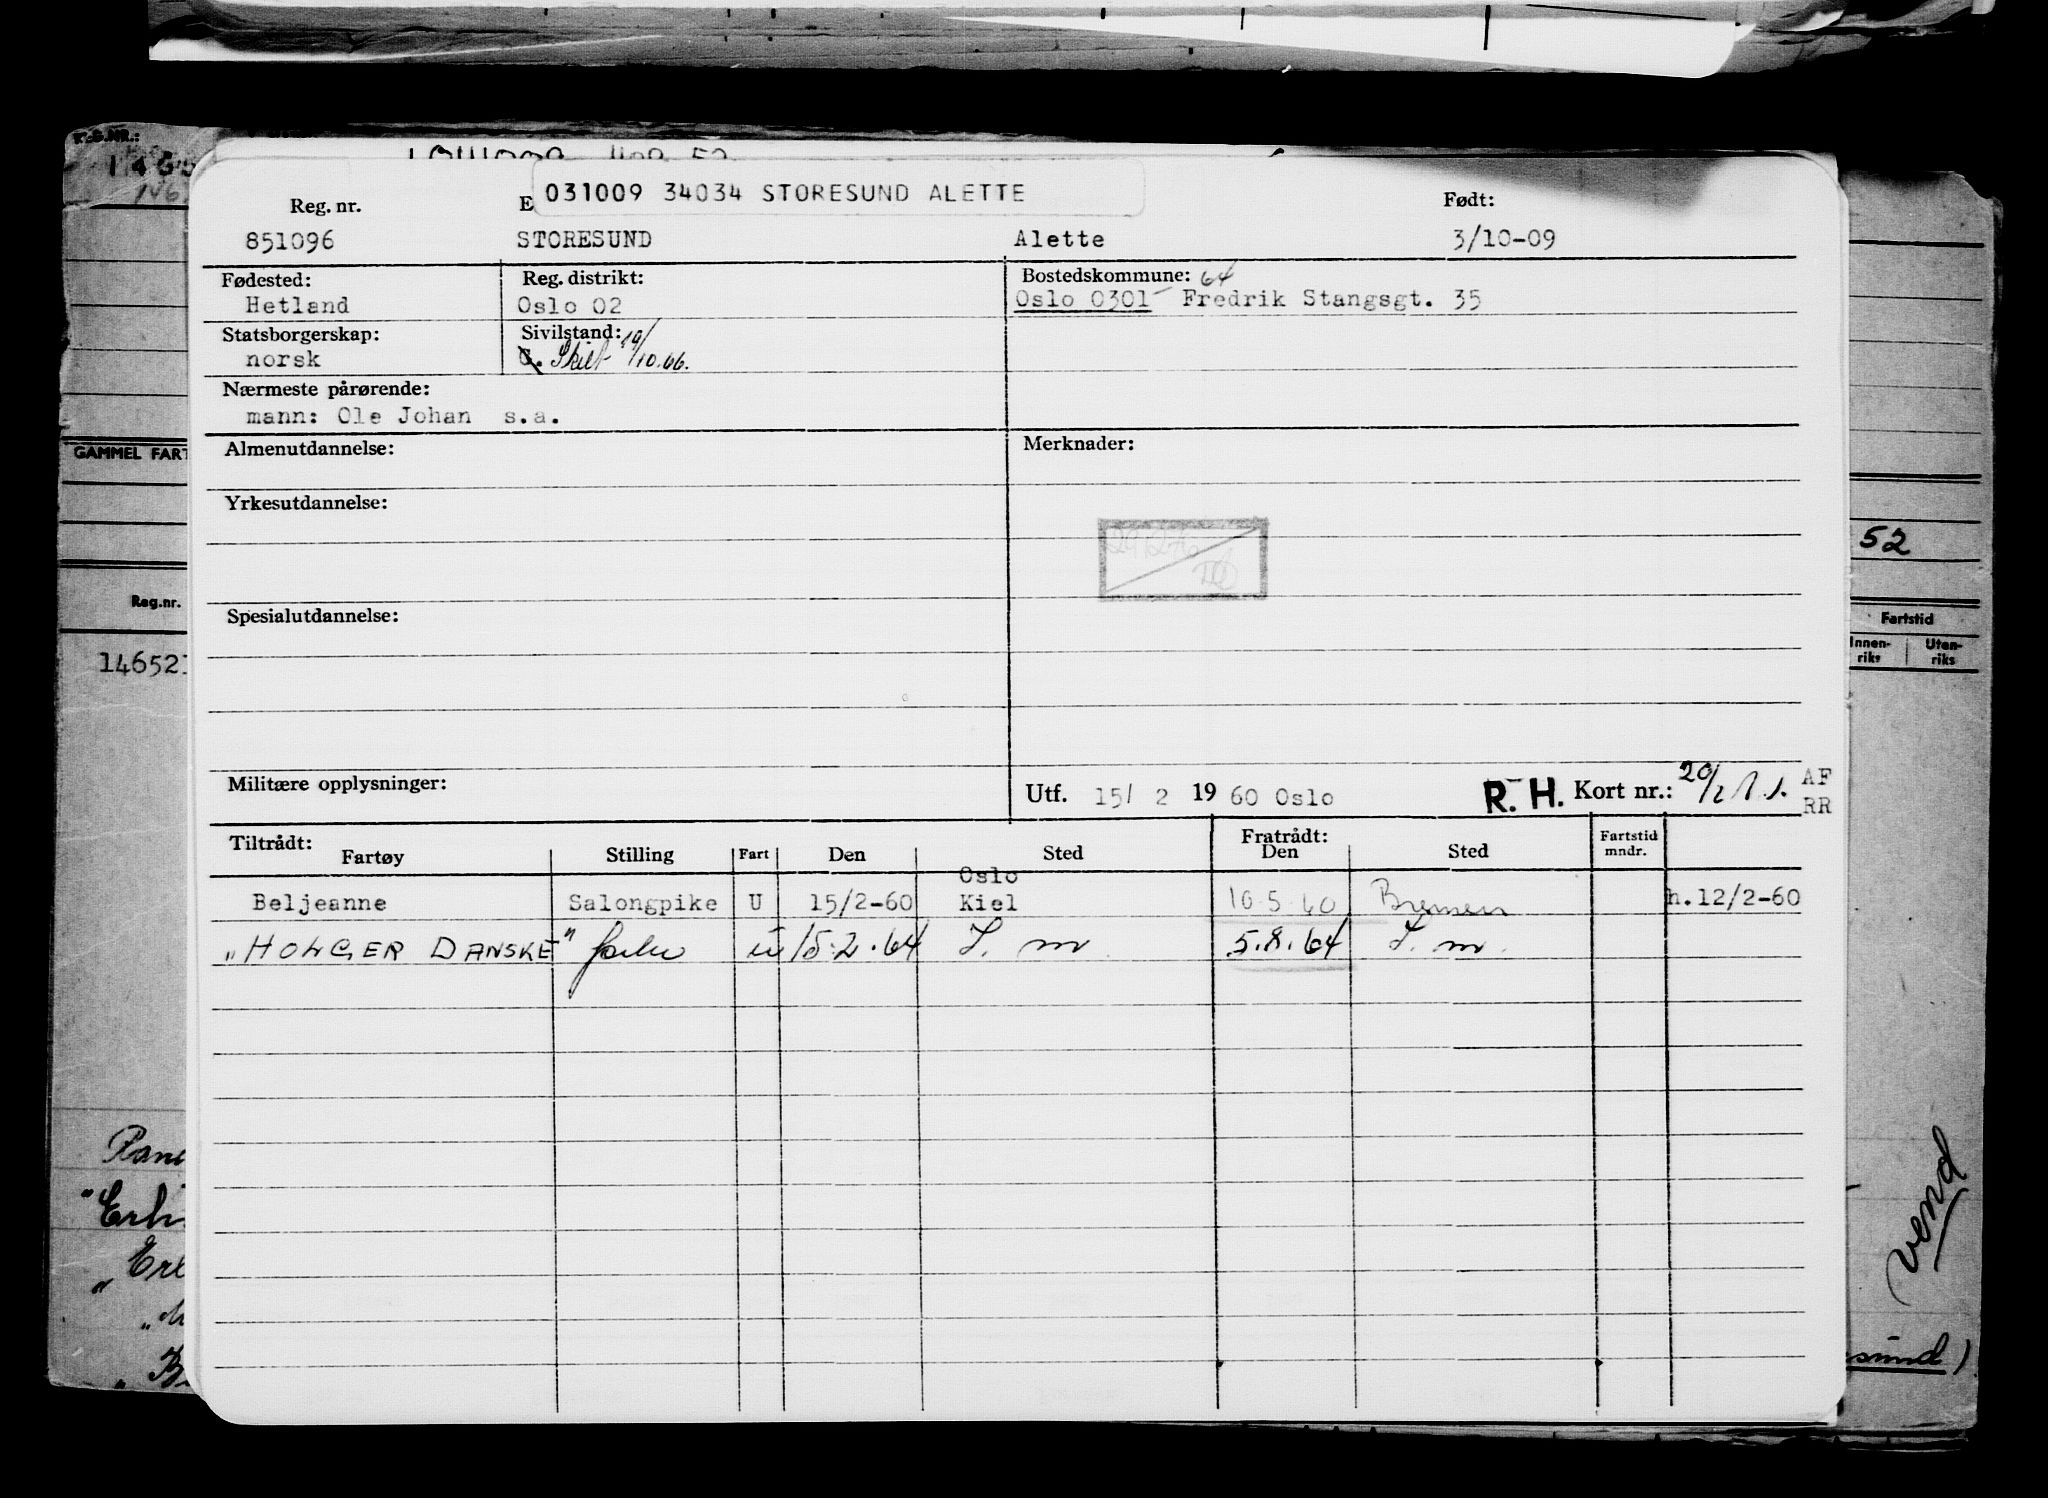 031009 34034 STORESUND ALETTE
Reg. nr. E Født:
851096 STORESUND Alette 3/10-09
Fødested: Reg. distrikt: Bostedskommune: 64
Hetland Oslo 02 Oslo 0301 Fredrik Stangsgt. 35
Statsborgerskap: Sivilstand:
norsk G. Skilt 19/10.66.
Nærmeste pårørende:
mann: Ole Johan s.a.
Almenutdannelse: Merknader:
Yrkesutdannelse:
Spesialutdannelse:
Militære opplysninger: Utf. 15/ 2 19 60 Oslo R. H. Kort nr.: AF
RR
Tiltrådt: Fratrådt:
Fartøy Stilling Fart Den Sted Den Sted Fartstid mndr.
Oslo
Beljeanne Salongpike U 15/2-60 Kiel 10.5.60 Bremen h.12/2-60
"HOLGER DANSKE" u 15.2.64 S. m. 5.8.64 S. m.
GAMMEL FART
Reg.nr.
14652
52
Fartstid
Innen-riks Uten-riks
vend